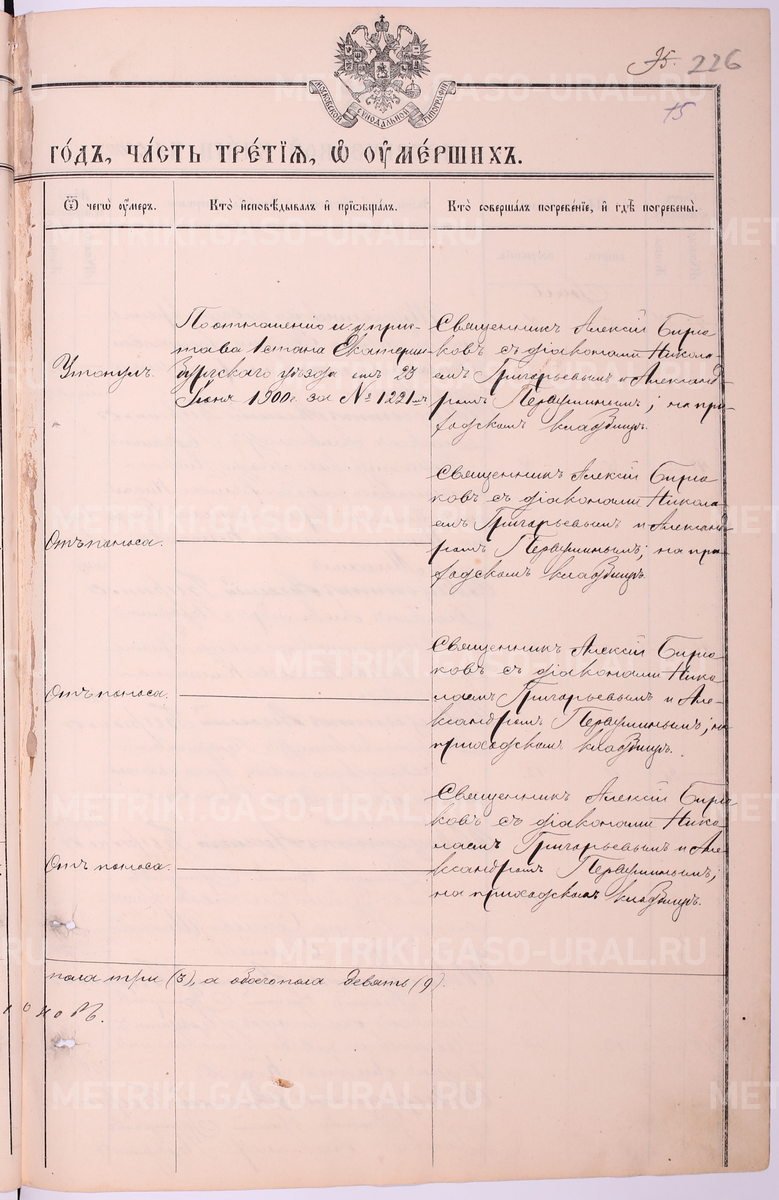 95. 226
15
МОСКОВСКОЙ СѴНОДАЛЬНОЙ ТИПОГРАФІИ
ГО́ДЪ, ЧА́СТЬ ТРЕ́ТІѦ, Ѡ҆ ОУ҆МЕ́РШИХЪ.
Ѿ чегѡ̀ оу҆́меръ.
Кто̀ и҆сповѣ́дывалъ и҆ прїѡбща́лъ.
Кто̀ соверша́лъ погребе́нїе, и҆ гдѣ̀ погребены̀.
Утонулъ.
По отношенію и. д. при-
става 1 стана Екатерин
бургскаго уѣзда отъ 23
Іюня 1900 г. за № 1221-мъ
Священникъ Алексій Бирю
ковъ съ діаконами Никола
емъ Григорьевымъ и Александ
ромъ Первушинымъ; на при-
ходскомъ кладбищѣ.
Отъ поноса.
Священникъ Алексій Бирю
ковъ съ діаконами Никола
емъ Григорьевымъ и Александ
ромъ Первушинымъ; на при-
ходскомъ кладбищѣ.
Отъ поноса.
Священникъ Алексій Бирю
ковъ съ діаконами Нико
лаемъ Григорьевымъ и Але-
ксандромъ Первушинымъ; на
приходскомъ кладбищѣ.
Отъ поноса.
Священникъ Алексій Бирю
ковъ съ діаконами Нико
лаемъ Григорьевымъ и Але
ксандромъ Первушинымъ;
на приходскомъ кладбищѣ.
пола три (3), а обоего пола девять (9).
METRIKI.GASO-URAL.RU